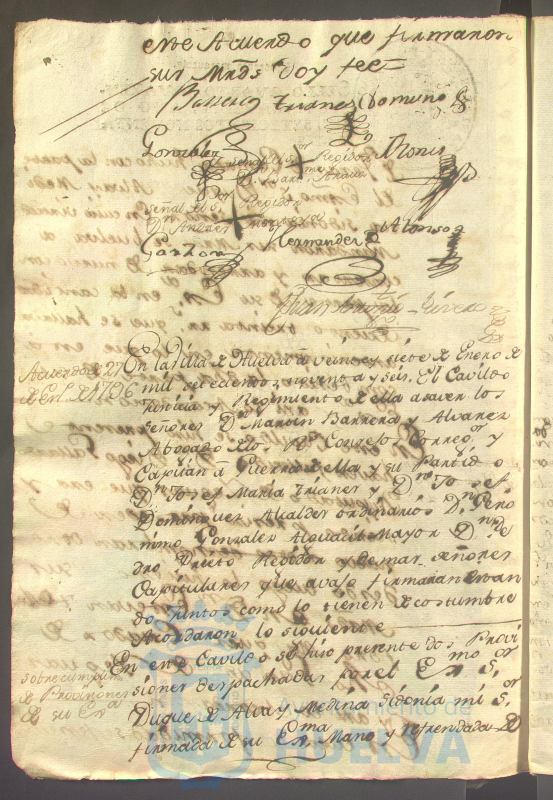 este Acuerdo que firmaron
sus Mrds Doy fee
Barrera Trianes Doming
Gonzalez señal del Sor Regidor
señal del Sor Regidor
Dn Andres
Garzon Hernandez Alonso
Acuerdo de 27
de En.o de 1796
En la Villa de Huelva à veinte y siete de Enero de
mil setecientos noventa y seis. El Cavildo
Justicia y Regimiento de ella asaver los
señores Dn Martin Barrera y Alvarez
Abogado de los Rs Consejos, Corregor y
Capitan à Guerra de ella y su Partido
Dn Josef Maria Trianes y Dn Josef
Dominguez Alcaldes ordinarios Dn Gero
nimo Gonzalez Alguacil Mayor Dn Pe
dro Prieto Rexidor y demas señores
Capitulares que avajo firmaran estan
do juntos como lo tienen de costumbre
Acordaron lo siguiente
sobre cumplim
de Provisiones
de su Exa
En este Cavildo se hizo presente dos Provi
siones despachadas por el Exmo Sor
Duque de Alva y Medina Sidonia mi Sor
firmada de su Exma Mano y refrendada de
Ayuntamiento de
HUELVA